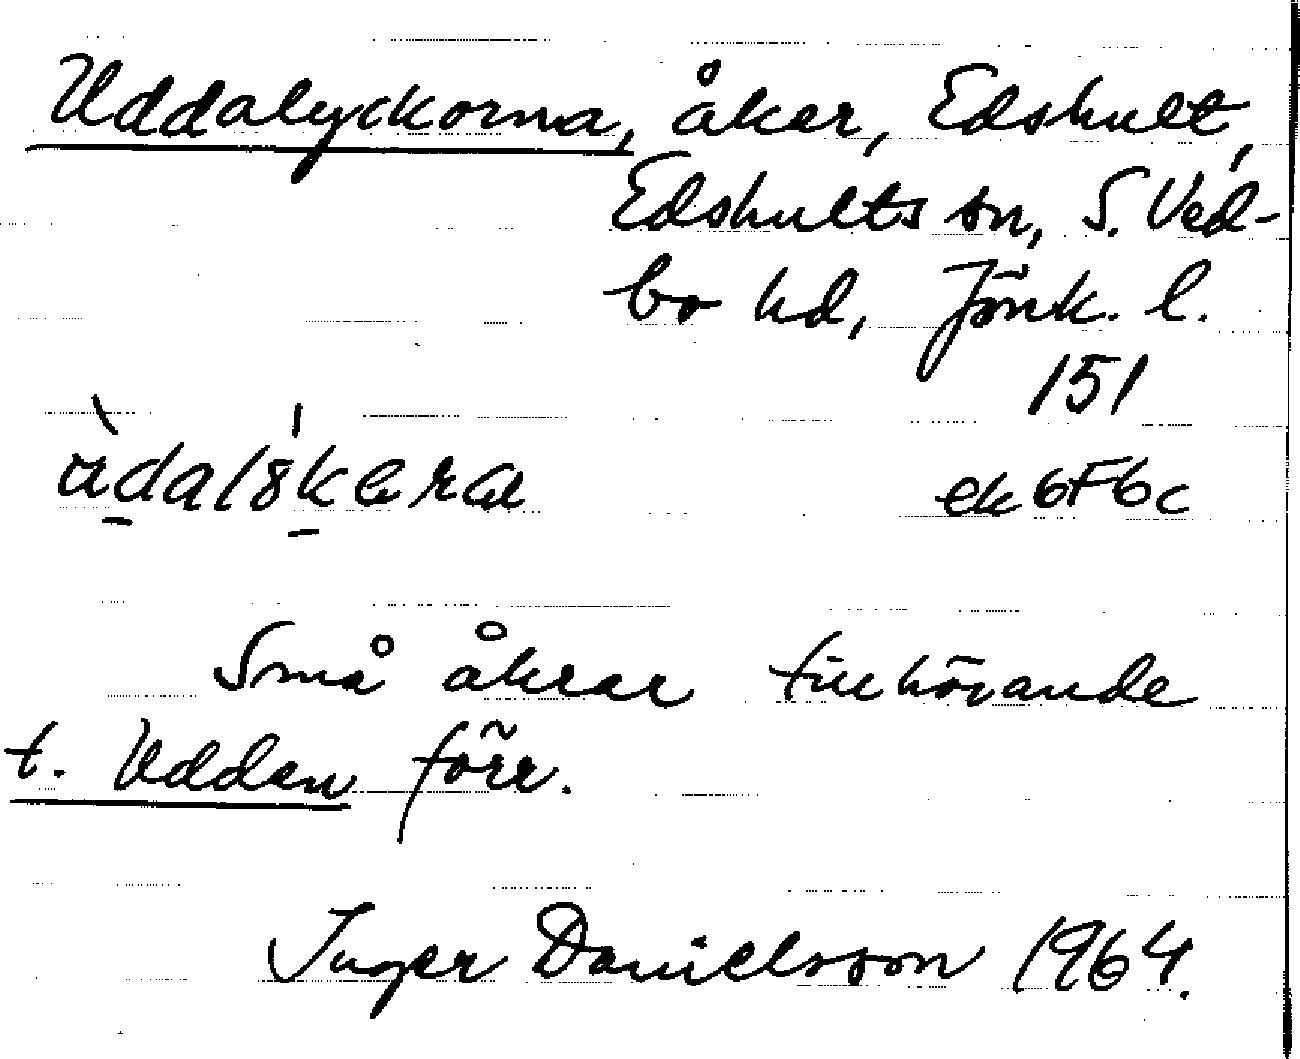 Uddalyckorna, åker, Edshult,
Edshults sn, S. Ved-
bo hd, Jönk. l.
151
ek 6F6c
Små åkrar tillhörande
t. Udden förr.
Inger Danielsson 1964.